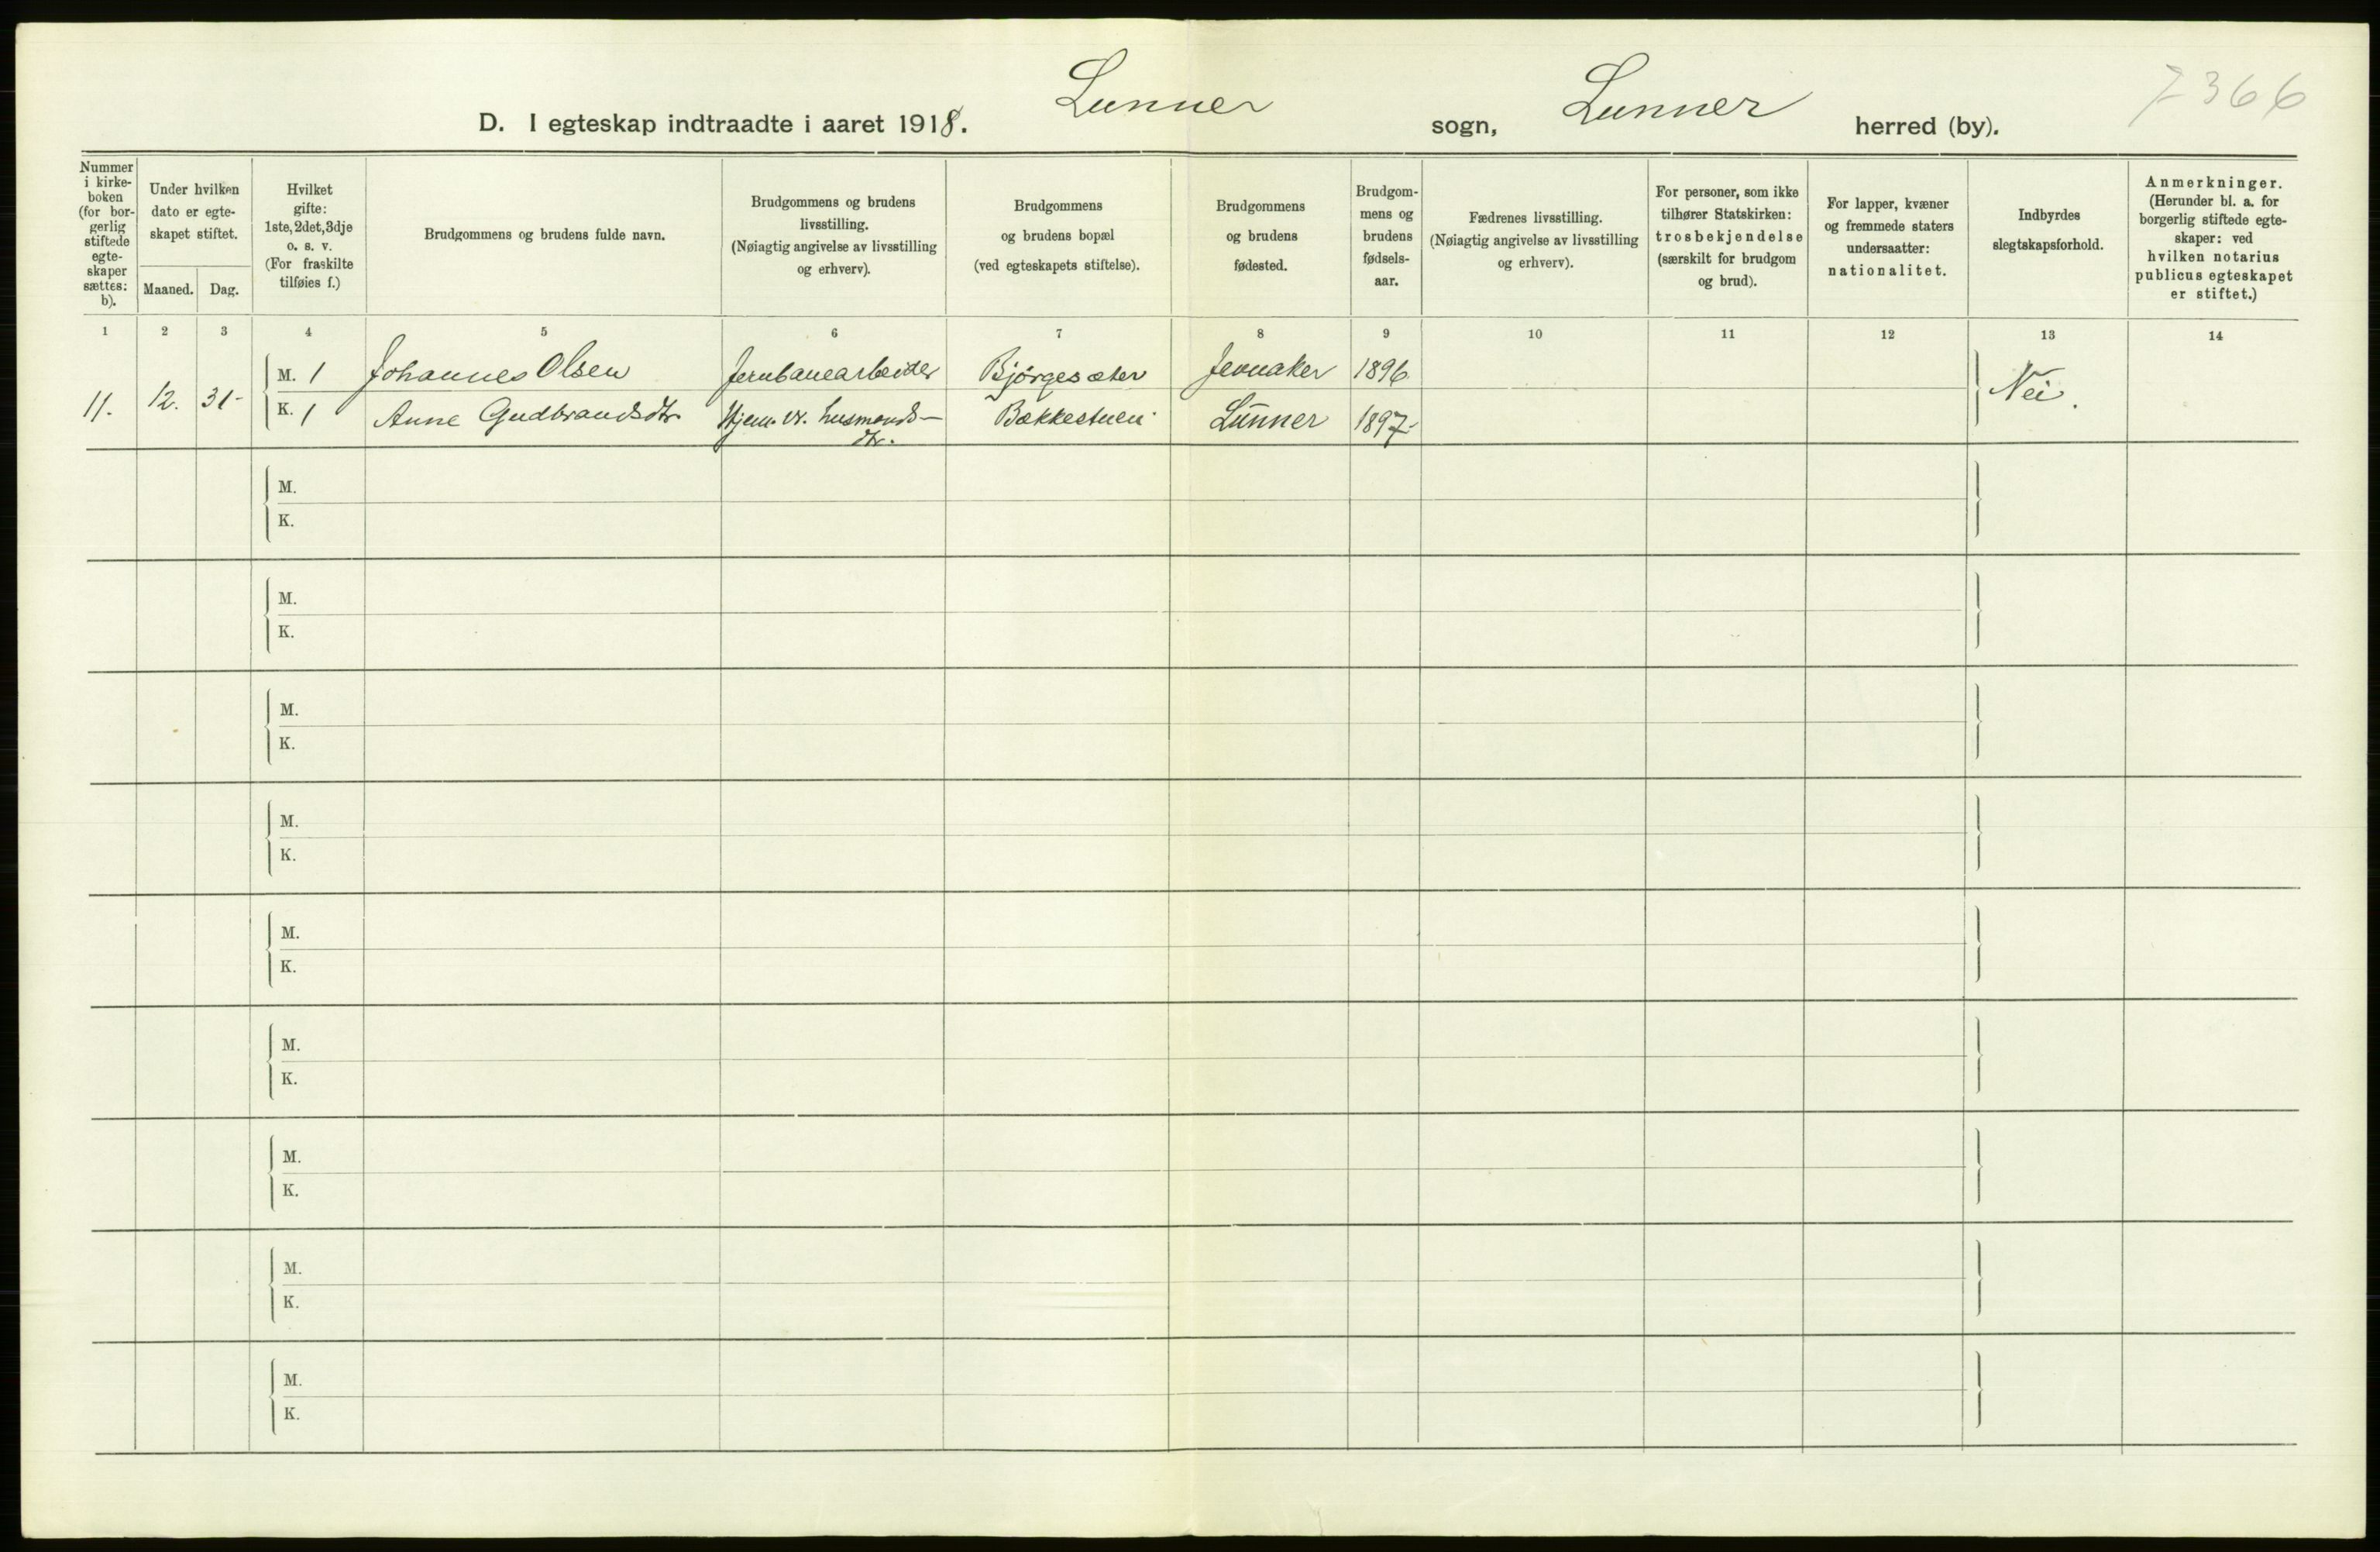 7366
D. I egteskap indtraadte i aaret 1918. Lunner sogn, Lunner herred (by).
Nummer i kirke-boken (for bor-gerlig stiftede egte-skaper sættes: b).
Under hvilken dato er egte-skapet stiftet.
Maaned. Dag.
Hvilket gifte: 1ste, 2det, 3dje o. s. v. (For fraskilte tilføies f.)
Brudgommens og brudens fulde navn.
Brudgommens og brudens livsstilling. (Nøiagtig angivelse av livsstilling og erhverv).
Brudgommens og brudens bopæl (ved egteskapets stiftelse).
Brudgommens og brudens fødested.
Brudgom-mens og brudens fødsels-aar.
Fædrenes livsstilling. (Nøiagtig angivelse av livsstilling og erhverv).
For personer, som ikke tilhører Statskirken: trosbekjendelse (særskilt for brudgom og brud).
For lapper, kvæner og fremmede staters undersaatter: nationalitet.
Indbyrdes slegtskapsforhold.
Anmerkninger. (Herunder bl. a. for borgerlig stiftede egte-skaper: ved hvilken notarius publicus egteskapet er stiftet.)
1 2 3 4 5 6 7 8 9 10 11 12 13 14
11. 12. 31- M. 1 Johannes Olsen Jernbanearbeider Bjørgesæter Jevnaker 1896 Nei.
K. 1 Anne Gudbrandsdtr Hjem. v. husmands-dtr. Bækkestuen Lunner 1897-
M.
K.
M.
K.
M.
K.
M.
K.
M.
K.
M.
K.
M.
K.
M.
K.
M.
K.